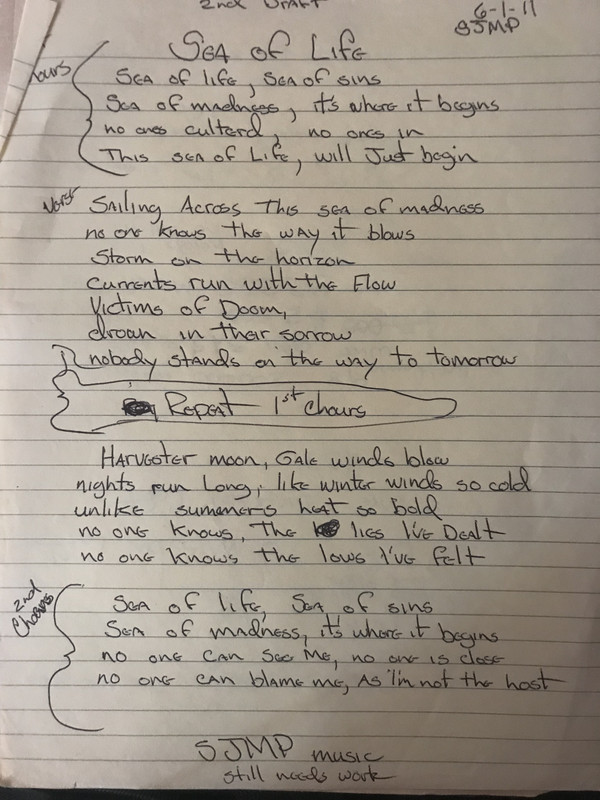 2nd Draft
6-1-11
SJMP
Sea of Life
hours
Sea of life, Sea of sins
Sea of madness, it's where it begins
no ones culterd, no ones in
This sea of Life, will Just begin
Verse
Sailing Across This sea of madness
no one knows the way it blows
Storm on the horizon
Currents run with the Flow
Victims of Doom,
droan in their sorrow
nobody stands on the way to tomorrow
Repeat 1st Chours
Harvester moon, Gale winds blow
nights run Long, like winter winds so cold
unlike summers heat so bold
no one knows, The lies I've Dealt
no one knows the lows I've felt
2nd Chours
Sea of life, Sea of sins
Sea of madness, it's where it begins
no one can see me, no one is close
no one can blame me, As I'm not the host
SJMP music
still needs work